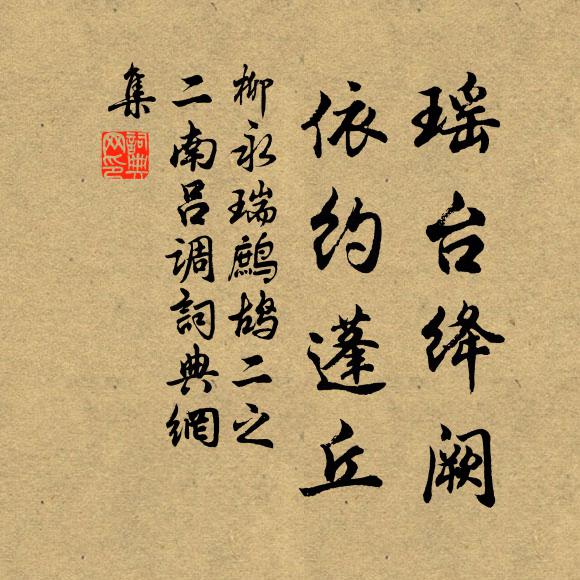 瑶台绛阙
依约蓬丘
柳永瑞鷓鸪二之
二南吕调詞典網
集
詞典
网印